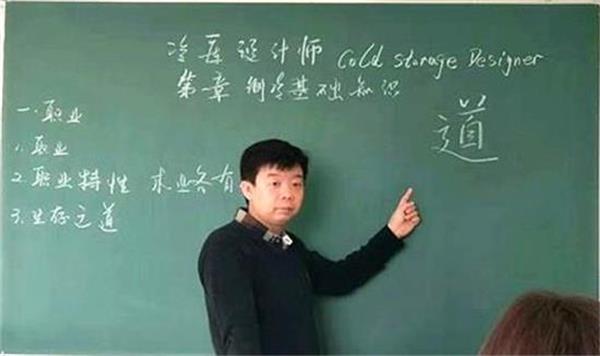 冷库设计师 Cold Storage Designer
第一章 制冷基础知识
一.职业
1.职业
2.职业特性 术业各有
3.生存之道
道